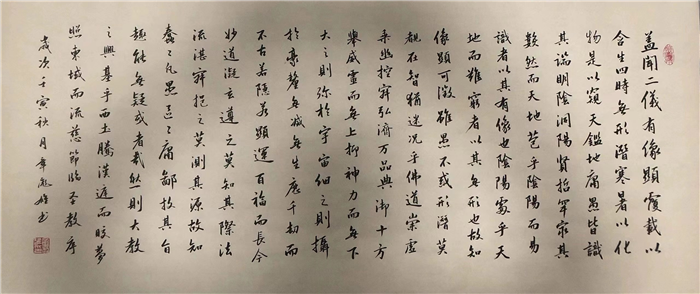 蓋聞二儀有像顯覆載以
含生四時無形潛寒暑以化
物是以窺天鑑地庸愚皆識
其端明陰洞陽賢哲罕窮其
數然而天地苞乎陰陽而易
識者以其有像也陰陽處乎天
地而難窮者以其無形也故知
像顯可徵雖愚不惑形潛莫
覩在智猶迷況乎佛道崇虛
乘幽控寂弘濟萬品典御十方
舉威靈而無上抑神力而無下
大之則彌於宇宙細之則攝
於毫釐無滅無生歷千劫而
不古若隱若顯運百福而長今
妙道凝玄遵之莫知其際法
流湛寂挹之莫測其源故知
蠢々凡愚區々庸鄙投其旨
趣能無疑或者哉然則大教
之興基乎西土騰漢庭而皎夢
照東域而流慈節臨聖教序
歲次壬寅秋月書